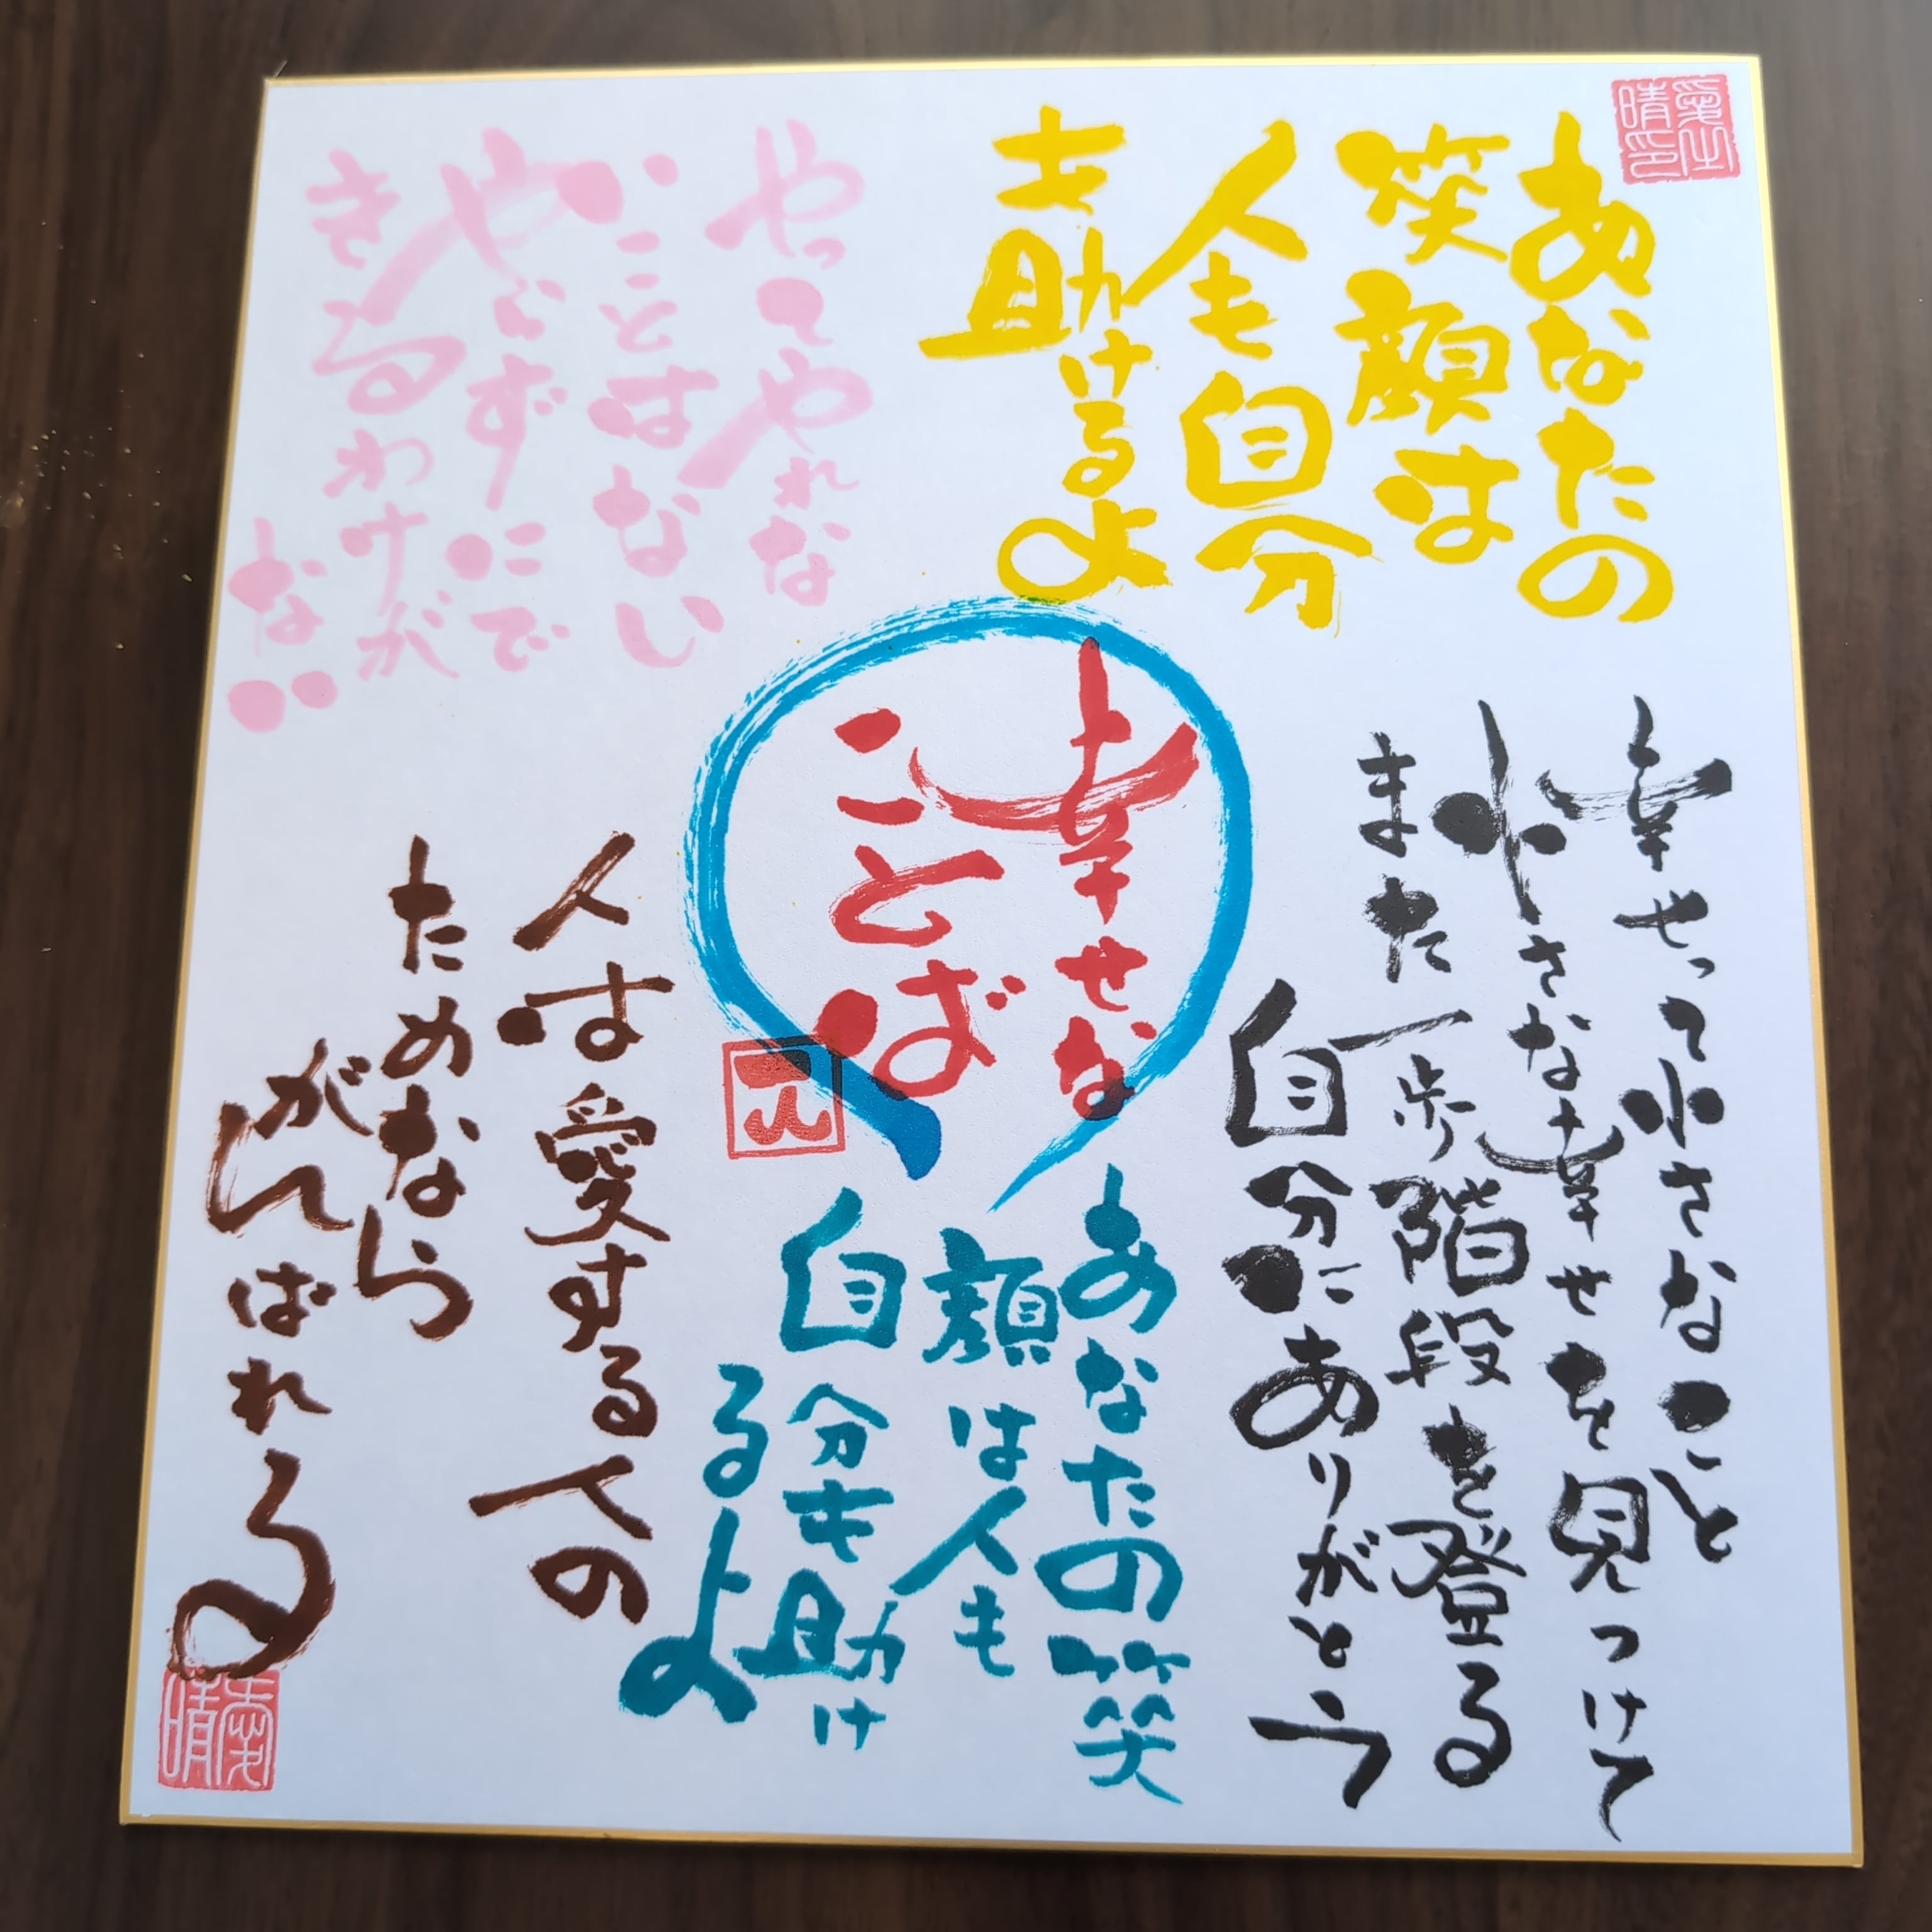 あなたの
笑顔は
人も自分
も助けるよ
やってやれな
いことはない
やらずにで
きるわけが
ない
幸せな
ことば
幸せって小さなこと
小さな幸せを見つけて
また一歩階段を登る
自分にありがとう
あなたの笑
顔は人も
自分も助け
るよ
人は愛する人の
ためなら
がんばれる